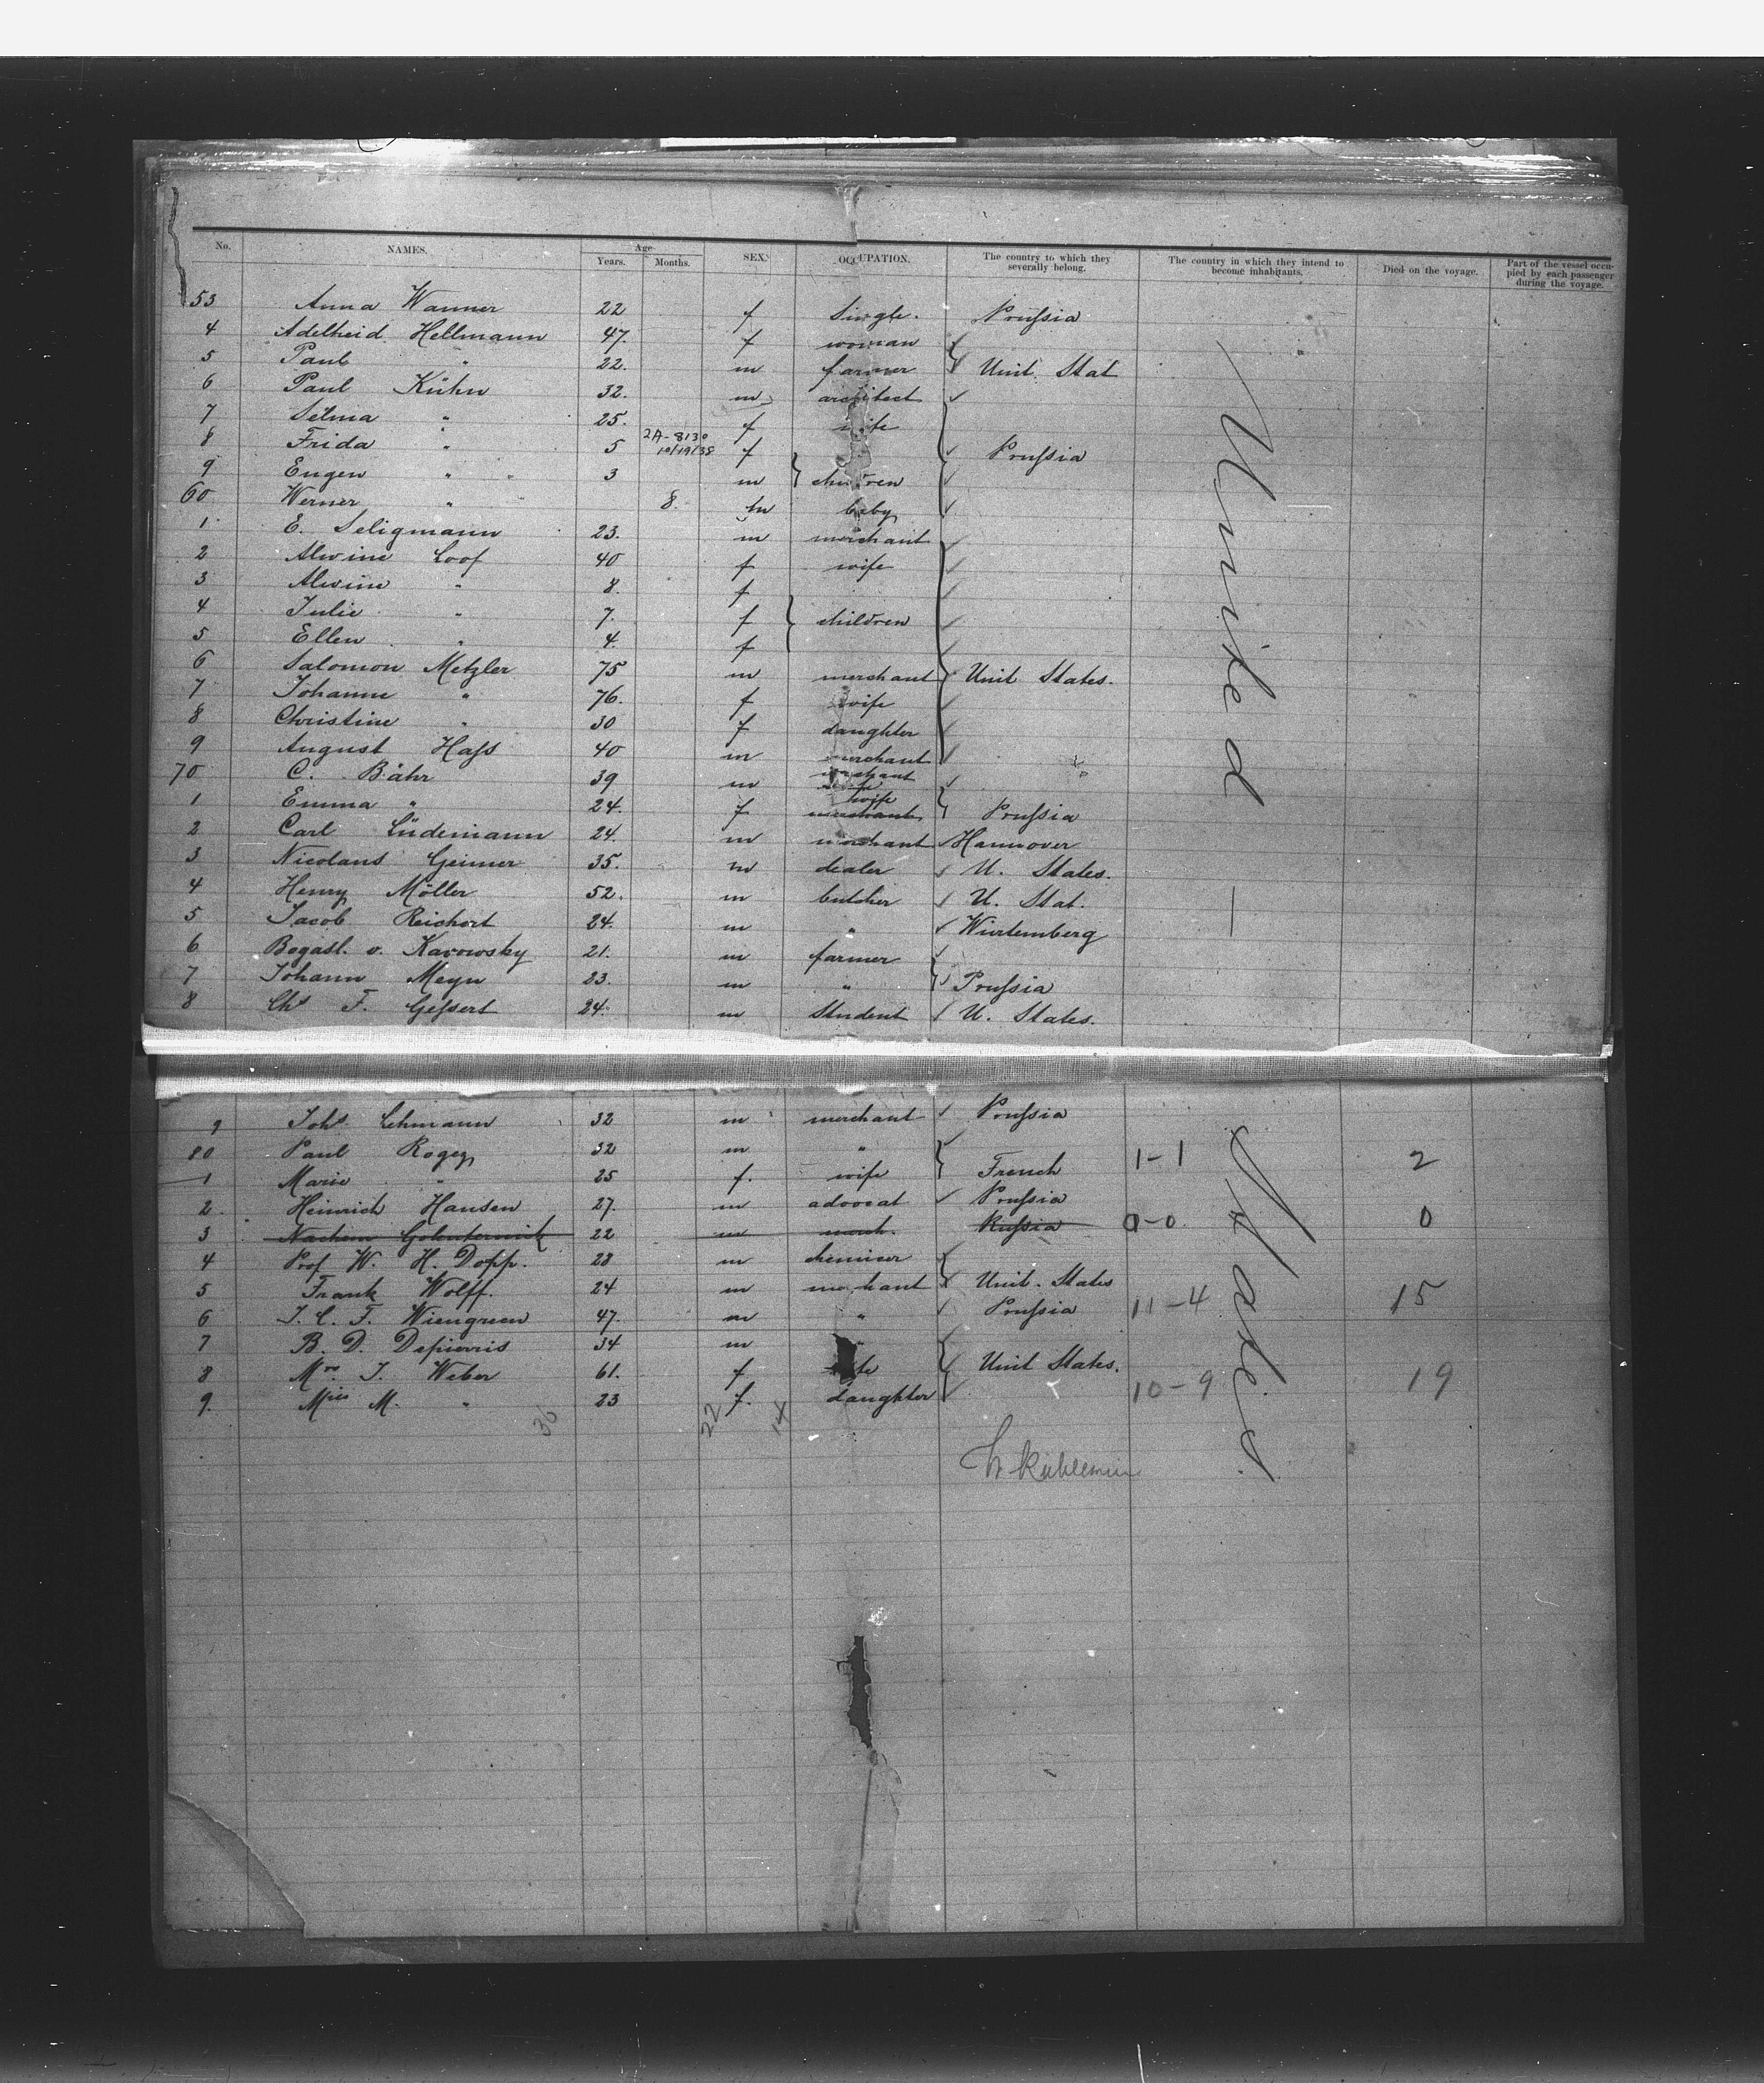 No. NAMES. Age Years. Months. SEX. OCCUPATION. The country to which they severally belong. The country in which they intend to become inhabitants. Died on the voyage. Part of the vessel occupied by each passenger during the voyage.
53 Anna Wanner 22 f Single. Prußia
4 Adelheid Hellmann 47. f woman
5 Paul " 22. m farmer Unit. Stat
6 Paul Kühn 32. m architect
7 Selma " 25. f wife
8 Frida " 5 2A-8130 10/19/38 f Prußia
9 Eugen " 3 m children
60 Werner " 8. m baby
1 E. Seligmann 23. m merchant
2 Alwine Loof 40 f wife
3 Alwine " 8. f
4 Julie " 7. f children
5 Ellen " 4. f
6 Salomon Metzler 75 m merchant Unit States.
7 Johanne " 76. f wife
8 Christine " 30 f daughter
9 August Haß 40 m merchant
70 C. Bähr 39 m merchant
1 Emma " 24. f wife merchant Prußia
2 Carl Lüdemann 24. m merchant Hannover
3 Nicolaus Geimer 35. m dealer U. States.
4 Henry Möller 52. m butcher U. Stat.
5 Jacob Reichert 24. m " Würtemberg
6 Bogasl. v. Karowsky 21. m farmer
7 Johann Meyn 23. m " Prußia
8 Chs F. Geßert 24. m Student U. States.
United
9 Johs Lehmann 32 m merchant Prußia
80 Paul Rogez 32 m " 1-1 2
1 Marie " 25 f. wife French
2. Heinrich Hansen 27. m advocat Prußia
3 Nachem 22 m merch. Rußia 0-0 0
4 Prof W. H. Dopp. 28 m chemicer
5 Frank Wolff. 24 m merchant Unit. States
6 J. C. F. Wiengreen 47. m " Prußia 11-4 15
7 B. D. Depierris 34 m "
8 Mrs. J. Weber 61. f wife Unit States.
9. Miss M. " 23 f. daughter 10-9 19
States.
36 22 14